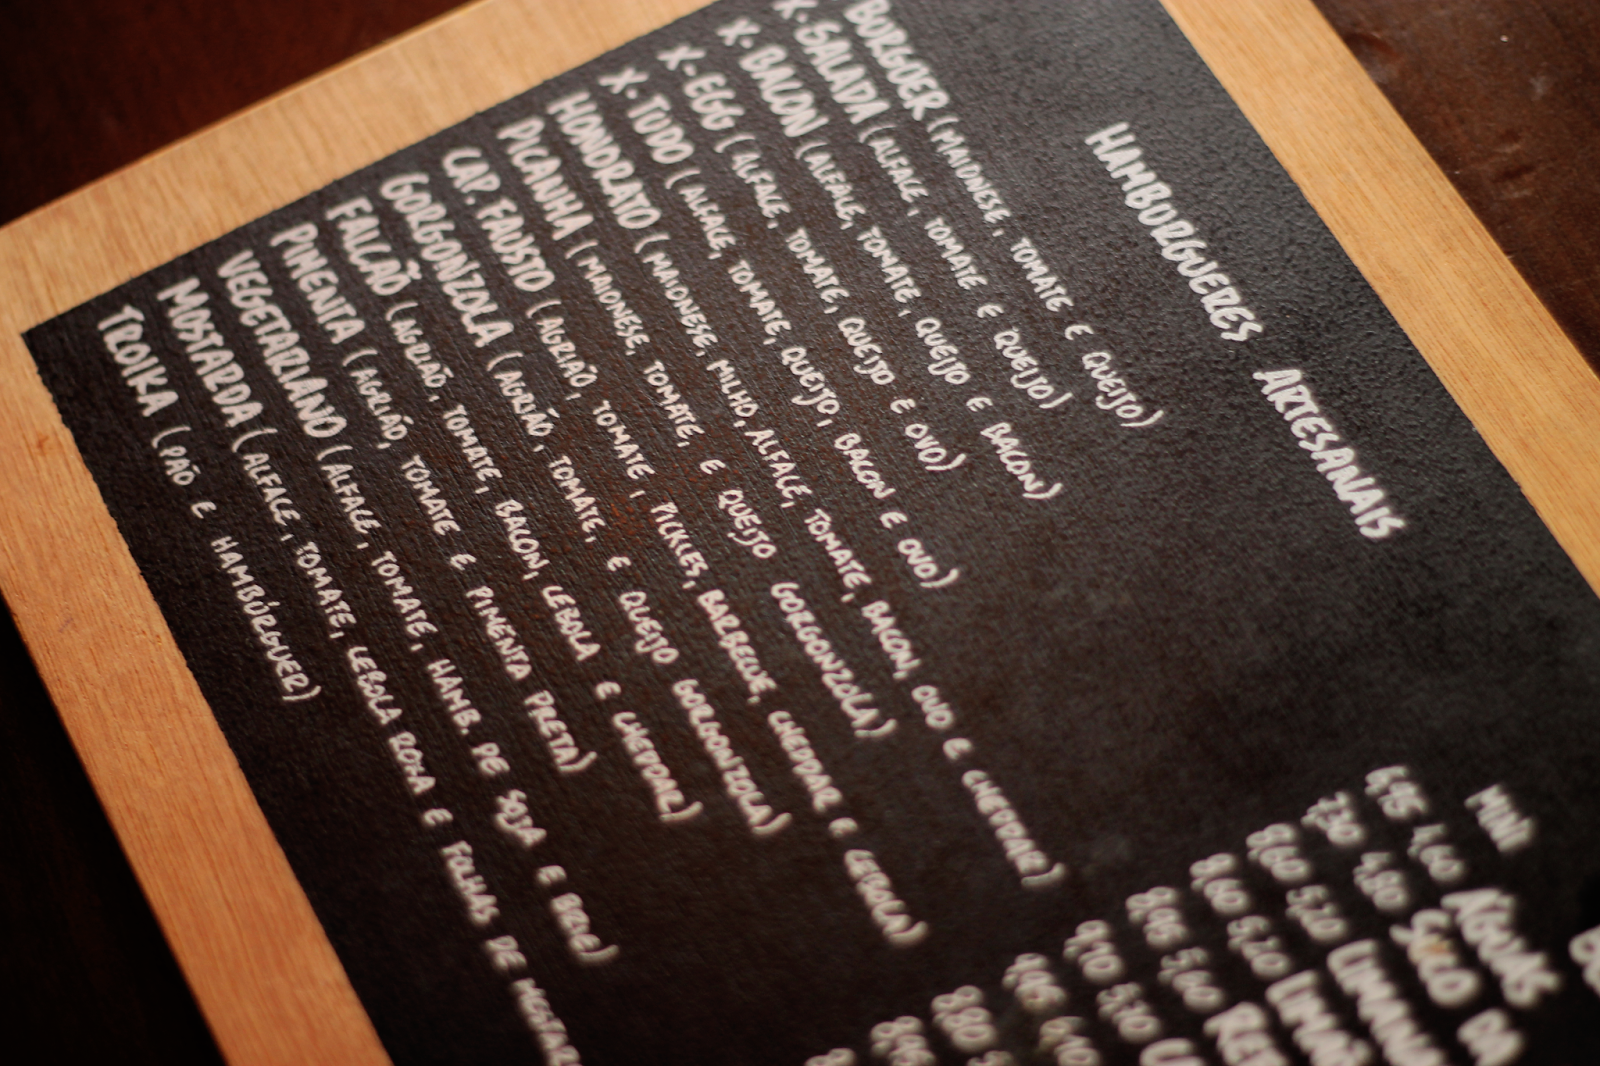 HAMBÚRGUERES ARTESANAIS
MINI
BURGUER (MAIONESE, TOMATE E QUEIJO)
X-SALADA (ALFACE, TOMATE E QUEIJO)
X-BACON (ALFACE, TOMATE, QUEIJO E BACON)
X-EGG (ALFACE, TOMATE, QUEIJO E OVO)
X-TUDO (ALFACE, TOMATE, QUEIJO, BACON E OVO)
HONORATO (MAIONESE, MILHO, ALFACE, TOMATE, BACON, OVO E CHEDDAR)
PICANHA (MAIONESE, TOMATE, E QUEIJO GORGONZOLA)
CAP. FAUSTO (AGRIÃO, TOMATE, PICKLES, BARBECUE, CHEDDAR E CEBOLA)
GORGONZOLA (AGRIÃO, TOMATE, E QUEIJO GORGONZOLA)
FALCÃO (AGRIÃO, TOMATE, BACON, CEBOLA E CHEDDAR)
PIMENTA (AGRIÃO, TOMATE E PIMENTA PRETA)
VEGETARIANO (ALFACE, TOMATE, HAMB. DE SOJA E BRIE)
MOSTARDA (ALFACE, TOMATE, CEBOLA ROXA E FOLHAS DE
TROIKA (PÃO E HAMBÚRGUER)
6,95 4,60
7,30 4,80
8,60 5,20
8,60 5,20
ÁGUAS
SUCO